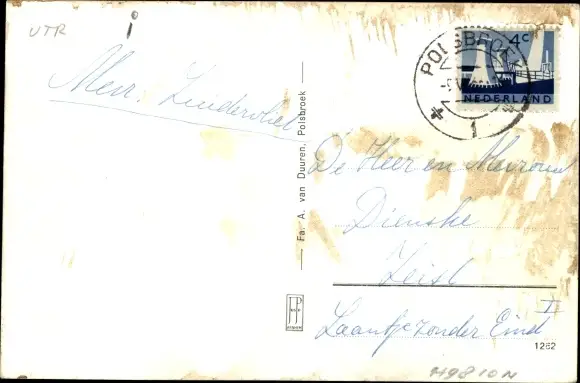 UTR
4c
NEDERLAND
POLSBROEK
1
Mevr. Zuidervliet
Fa. A. van Duuren, Polsbroek
De Heer en Mevrouw
Dienske
Zeist
Laantje zonder Eind
I
1262
H9810N